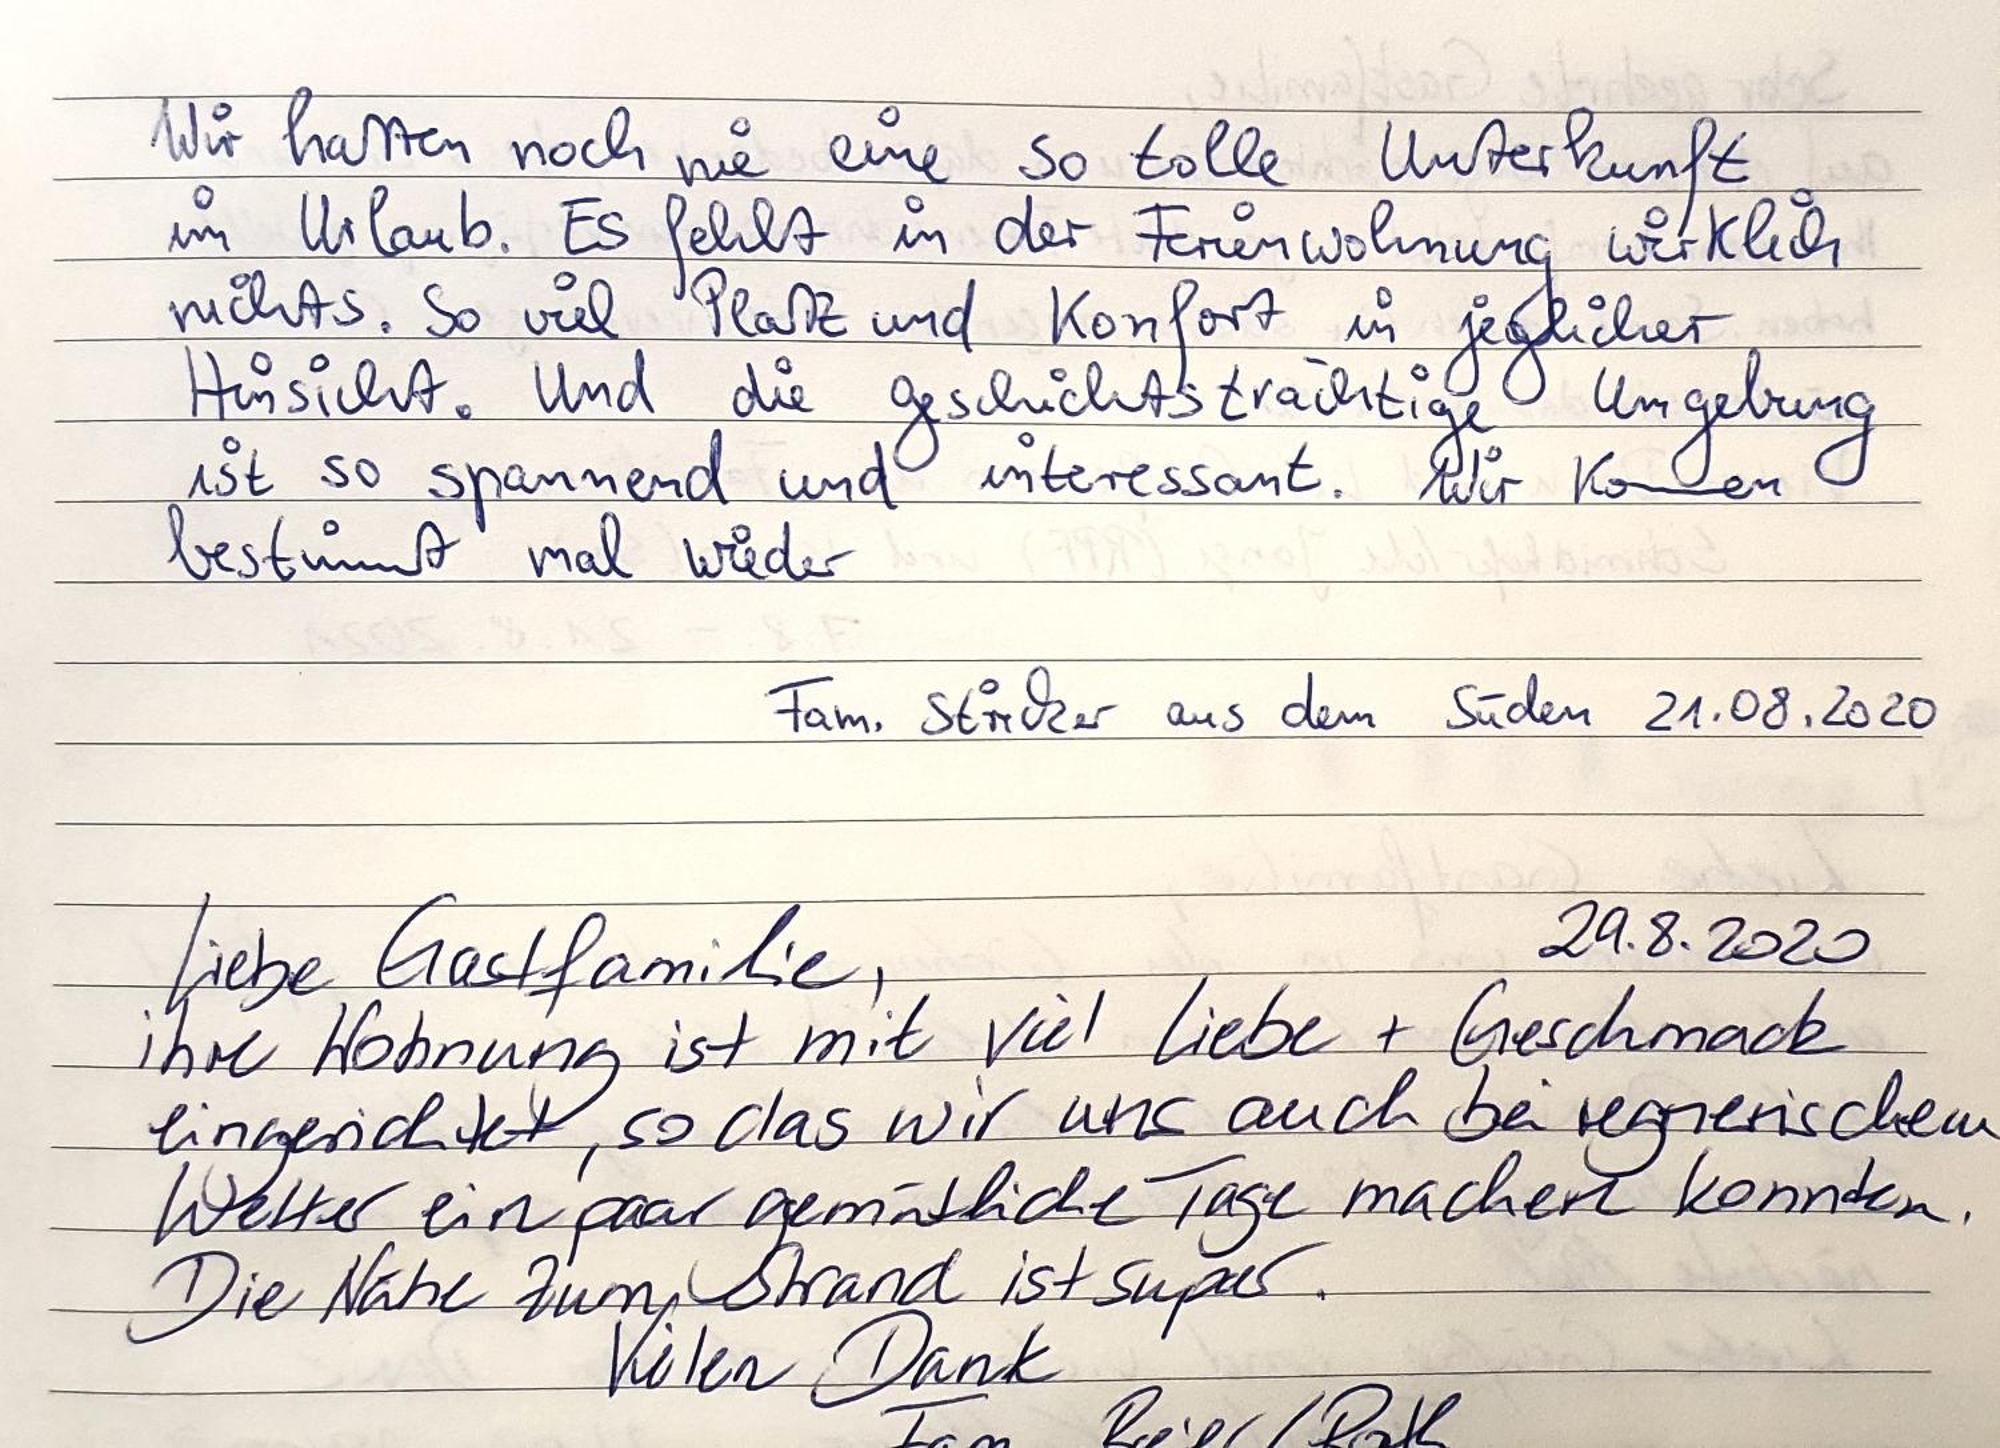 Wir hatten noch nie eine so tolle Unterkunft
im Urlaub. Es fehlt in der Ferienwohnung wirklich
nichts. So viel Platz und Konfort in jeglicher
Hinsicht. Und die geschichtsträchtige Umgebung
ist so spannend und interessant. Wir kommen
bestimmt mal wieder
Fam. Stricker aus dem Süden 21.08.2020
29.8.2020
Liebe Gastfamilie,
ihre Wohnung ist mit viel Liebe + Geschmack
eingerichtet, so das wir uns auch bei regnerischem
Wetter ein paar gemütliche Tage machen konnten.
Die Nähe zum Strand ist super.
Vielen Dank
Fam